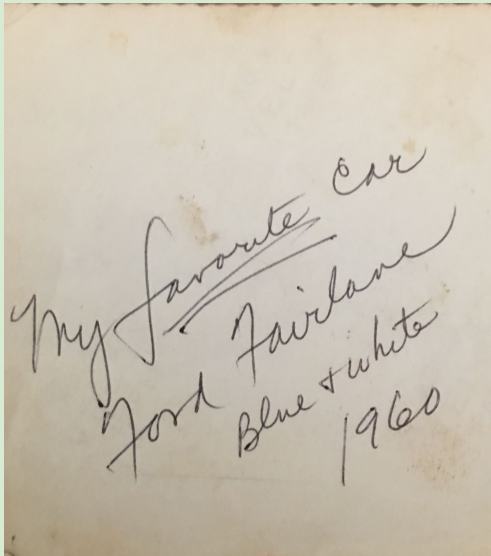 My favorite car
Ford Fairlane
Blue + white
1960